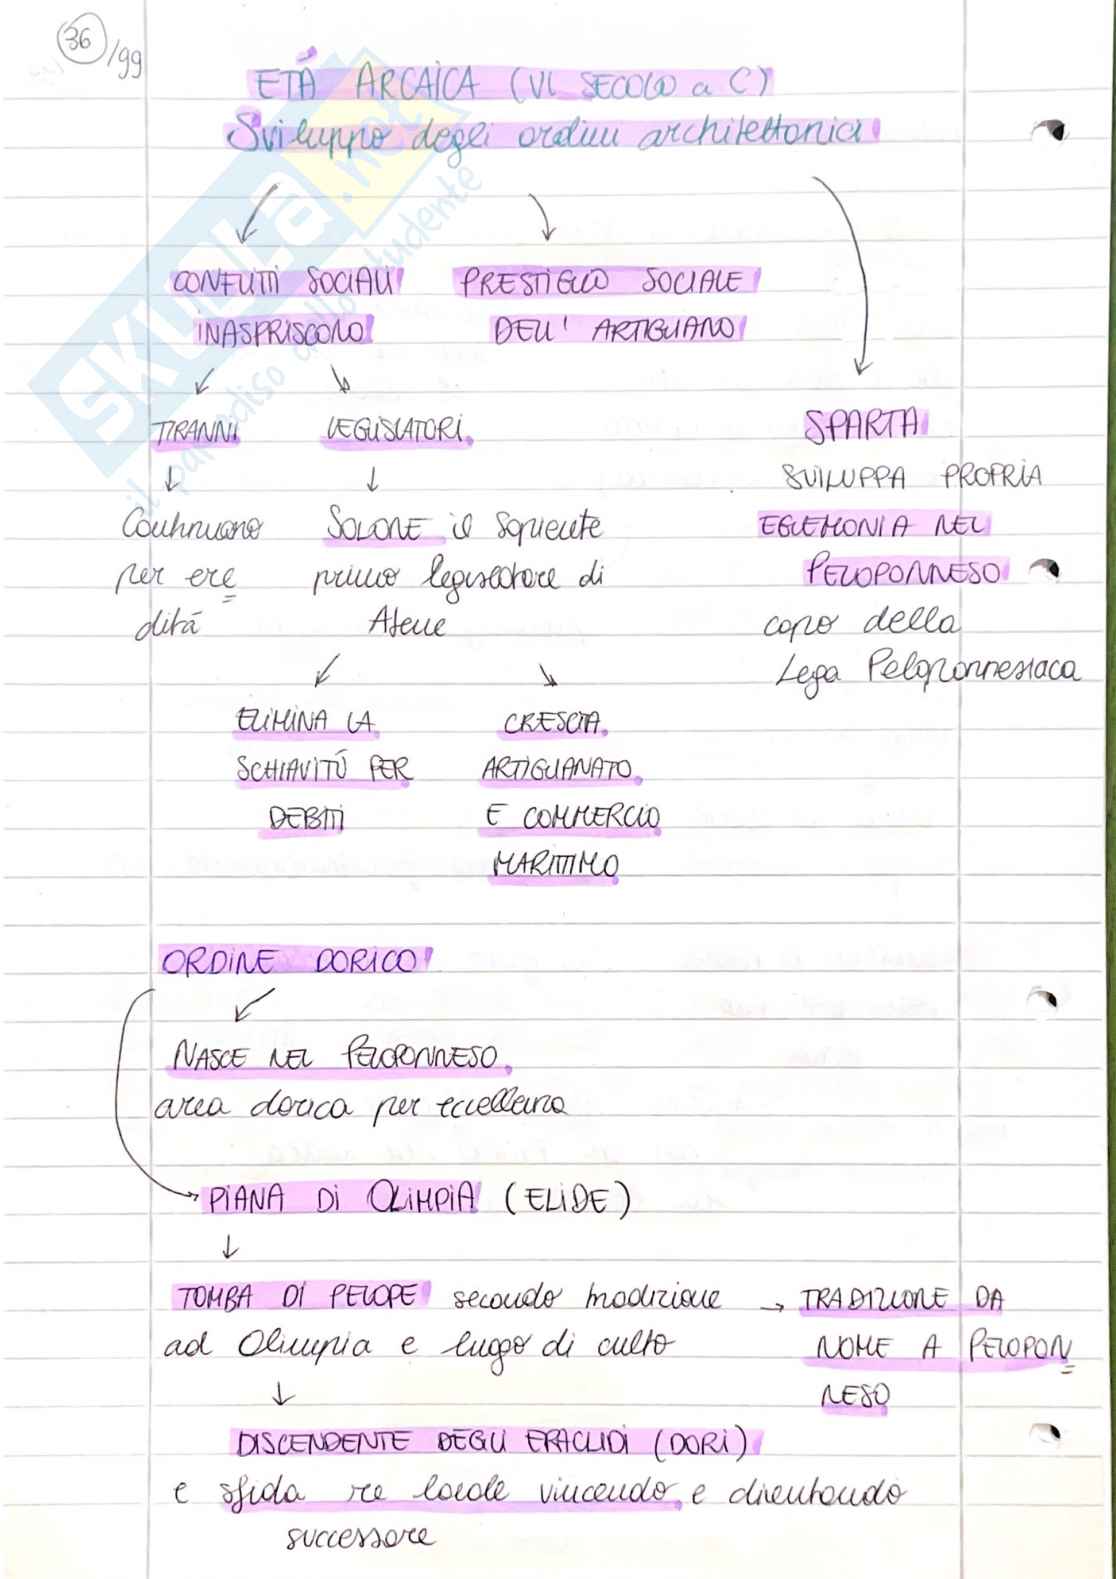 36/99
ETÁ ARCAICA (VI SECOLO a C)
Sviluppo degli ordini architettonici
CONFLITTI SOCIALI
INASPRISCONO
PRESTIGIO SOCIALE
DELL' ARTIGIANO
TIRANNI
Continuano
per ere
ditá
LEGISLATORI
SOLONE il
primo legislatore di
Atene
SPARTA
SVILUPPA PROPRIA
EGEMONIA NEL
PELOPONNESO
capo della
Lega Peloponnesiaca
ELIMINA LA
SCHIAVITÚ PER
DEBITI
CRESCITA
ARTIGIANATO
E COMMERCIO
MARITTIMO
ORDINE DORICO
NASCE NEL PELOPONNESO
area dorica per eccellenza
PIANA DI OLIMPIA (ELIDE)
TOMBA DI PELOPE secondo tradizione → TRADIZIONE DA
ad Olimpia e luogo di culto
NOME A PELOPON
NESO
DISCENDENTE DEGLI ERACLIDI (DORI)
e sfida re locale vincendo e diventando
successore
SKUOLA.net
il paradiso dello studente